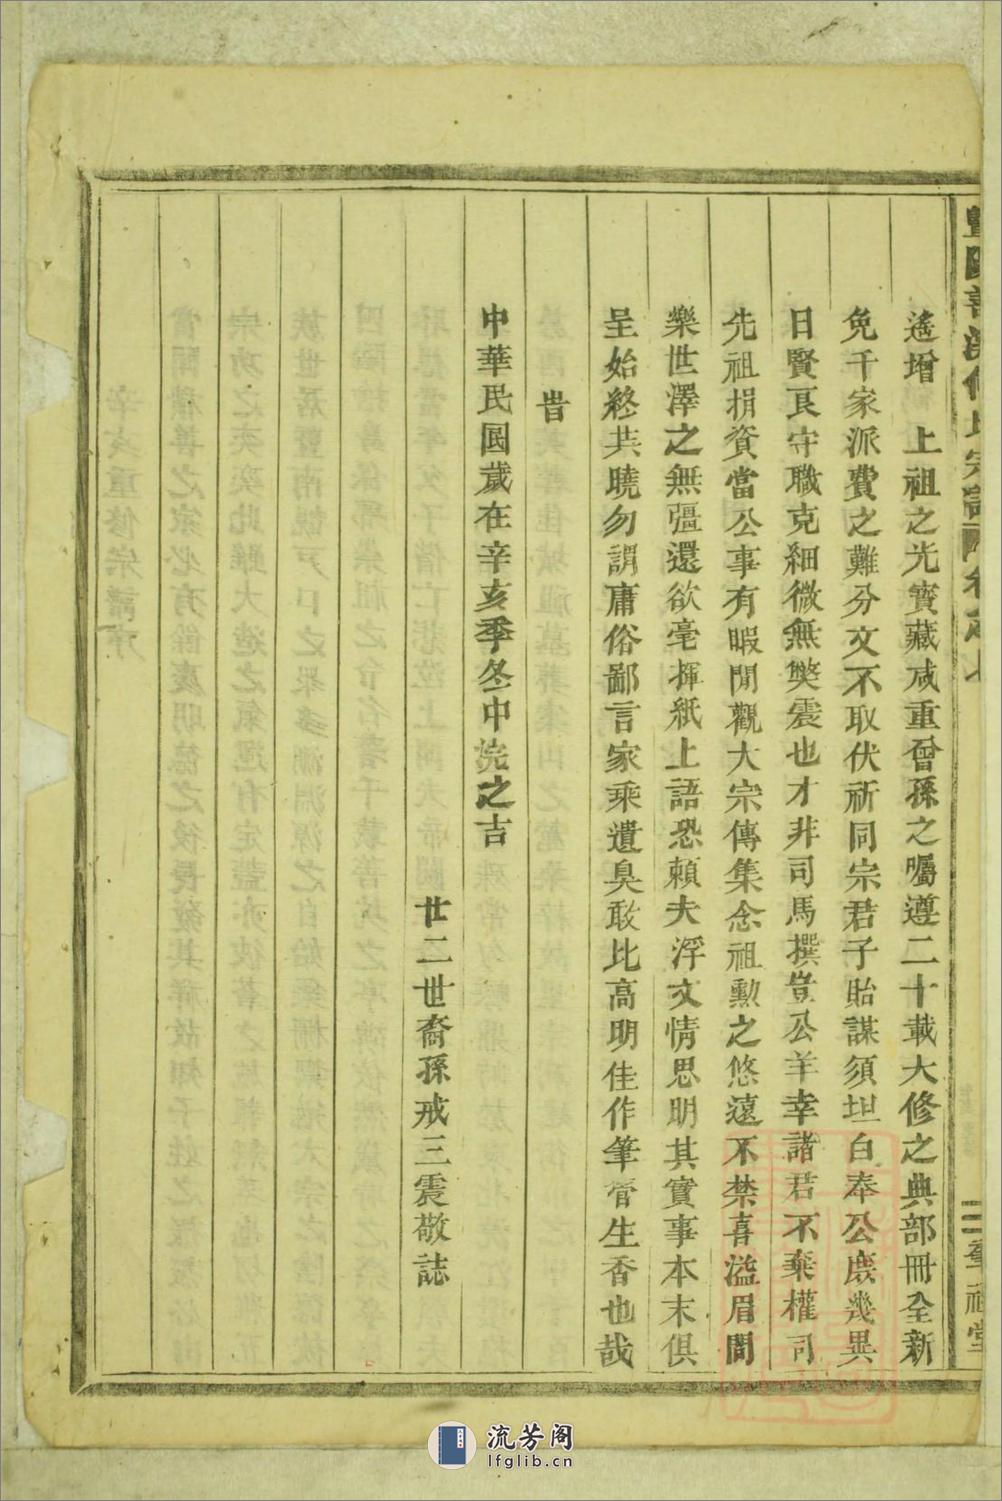 遙增　上祖之光寶藏咸重曾孫之囑遵二十載大修之典部冊全新
免千家派費之難分文不取伏祈同宗君子貽謀須坦白奉公庶幾異
日賢良守職克細微無獘震也才非司馬撰豈公羊幸諸君不棄權司
先祖捐資當公事有暇閒觀大宗傳集念祖勳之悠遠不禁喜溢眉間
樂世澤之無彊還欲毫揮紙上語恐賴夫浮文情思明其實事本末俱
呈始終共曉勿謂庸俗鄙言家乘遺臭敢比高明佳作筆管生香也哉
旹
中華民國歲在辛亥季冬中浣之吉
廿二世裔孫戒三震敬誌
流芳阁
lfglib.cn